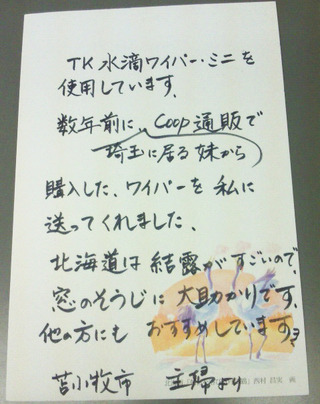 TK水滴ワイパー・ミニを
使用しています。
数年前に、Coop通販で
埼玉に居る妹から
購入した、ワイパーを私に
送ってくれました。
北海道は結露がすごいので、
窓のそうじに大助かりです。
他の方にもおすすめしています。
苫小牧市 主婦より